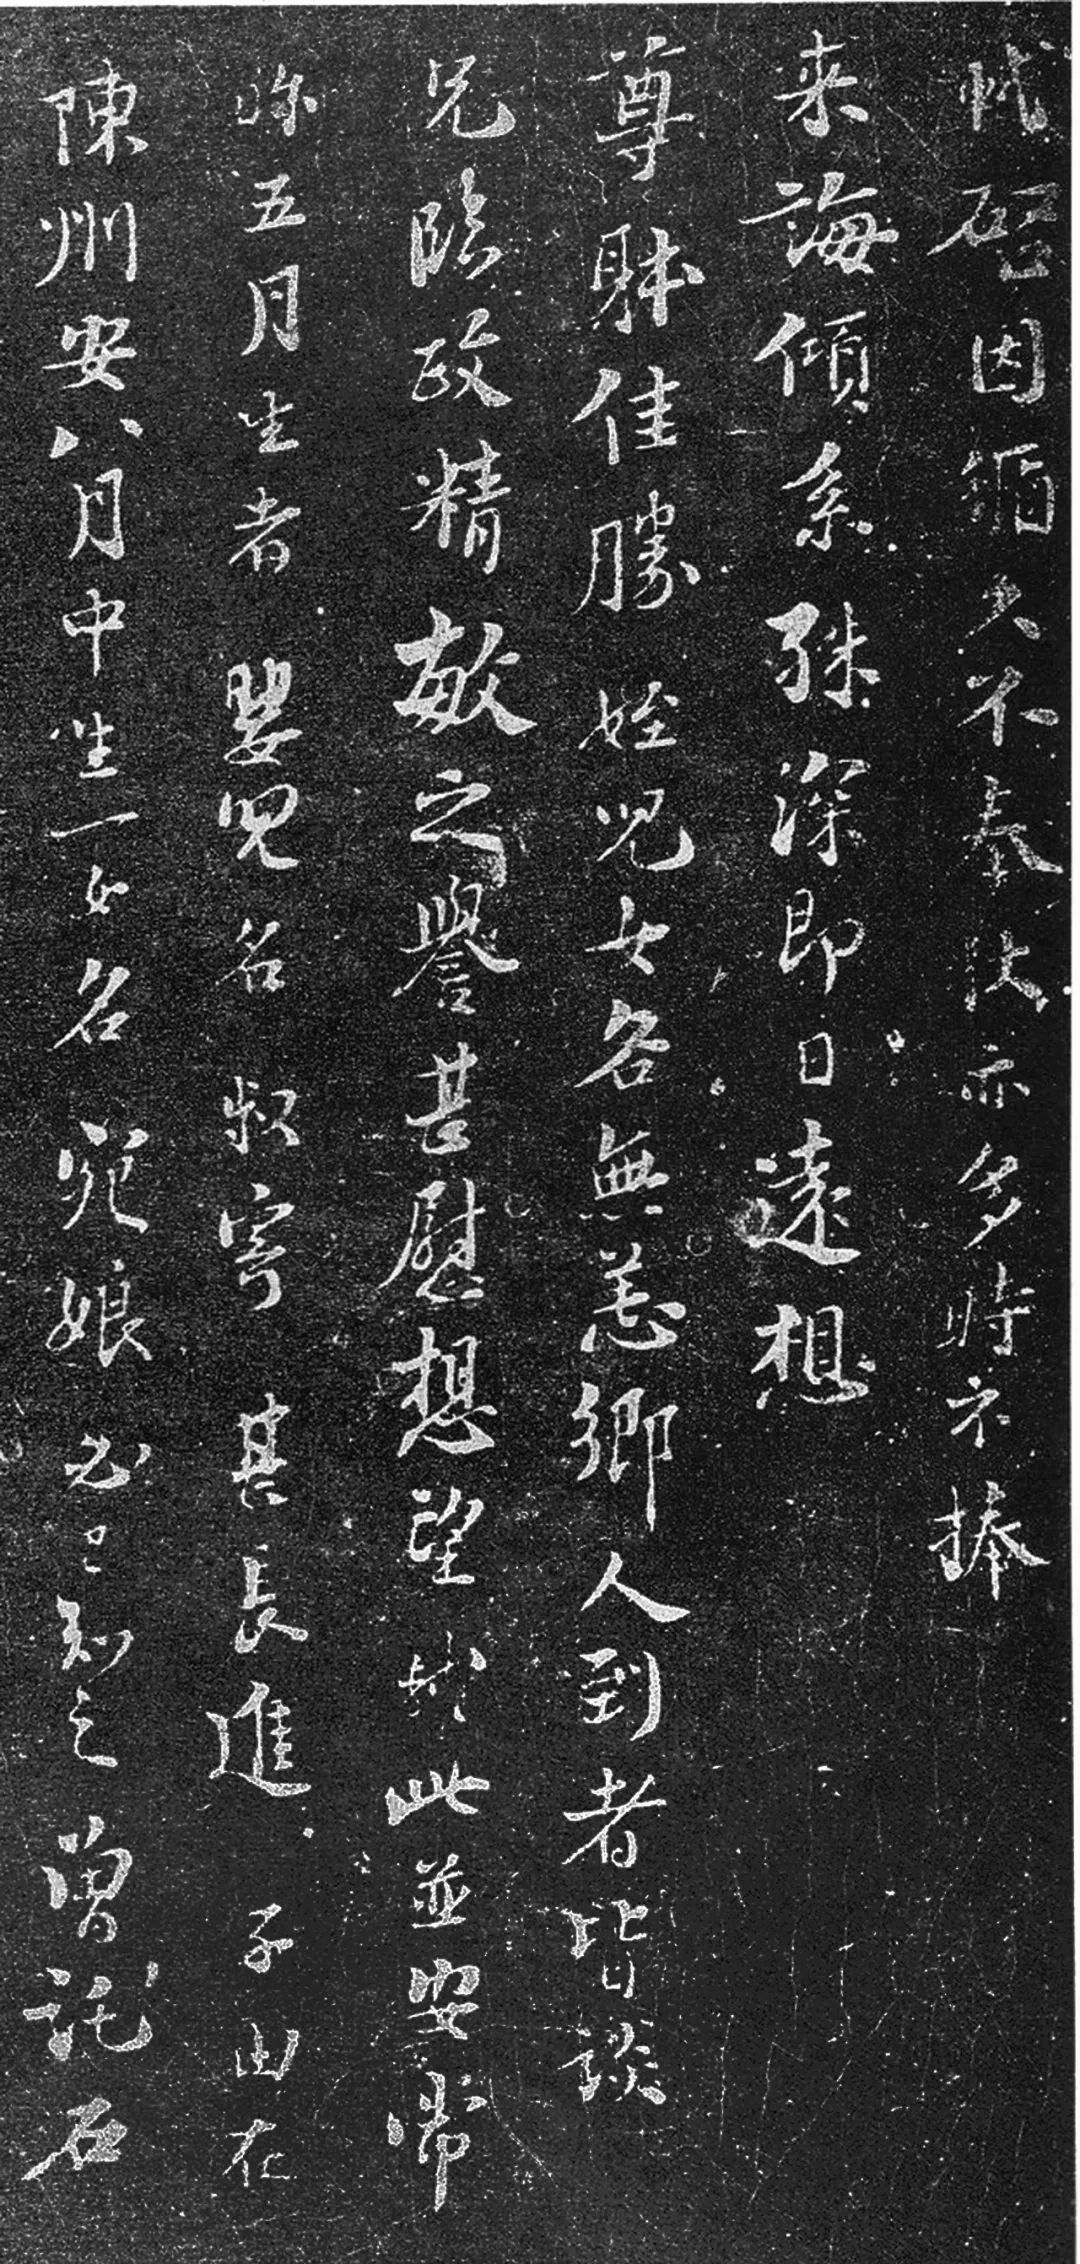 軾啓因循久不奉狀亦多時不捧
来誨傾系殊深即日遠想
尊躰佳勝姪兒女各無恙鄉人到者皆談
兄臨政精敏之譽甚慰想望此並安常
弥五月生者嬰兒名叔寄甚長進子由在
陳州安八月中生一女名宛娘必已知之曽託石